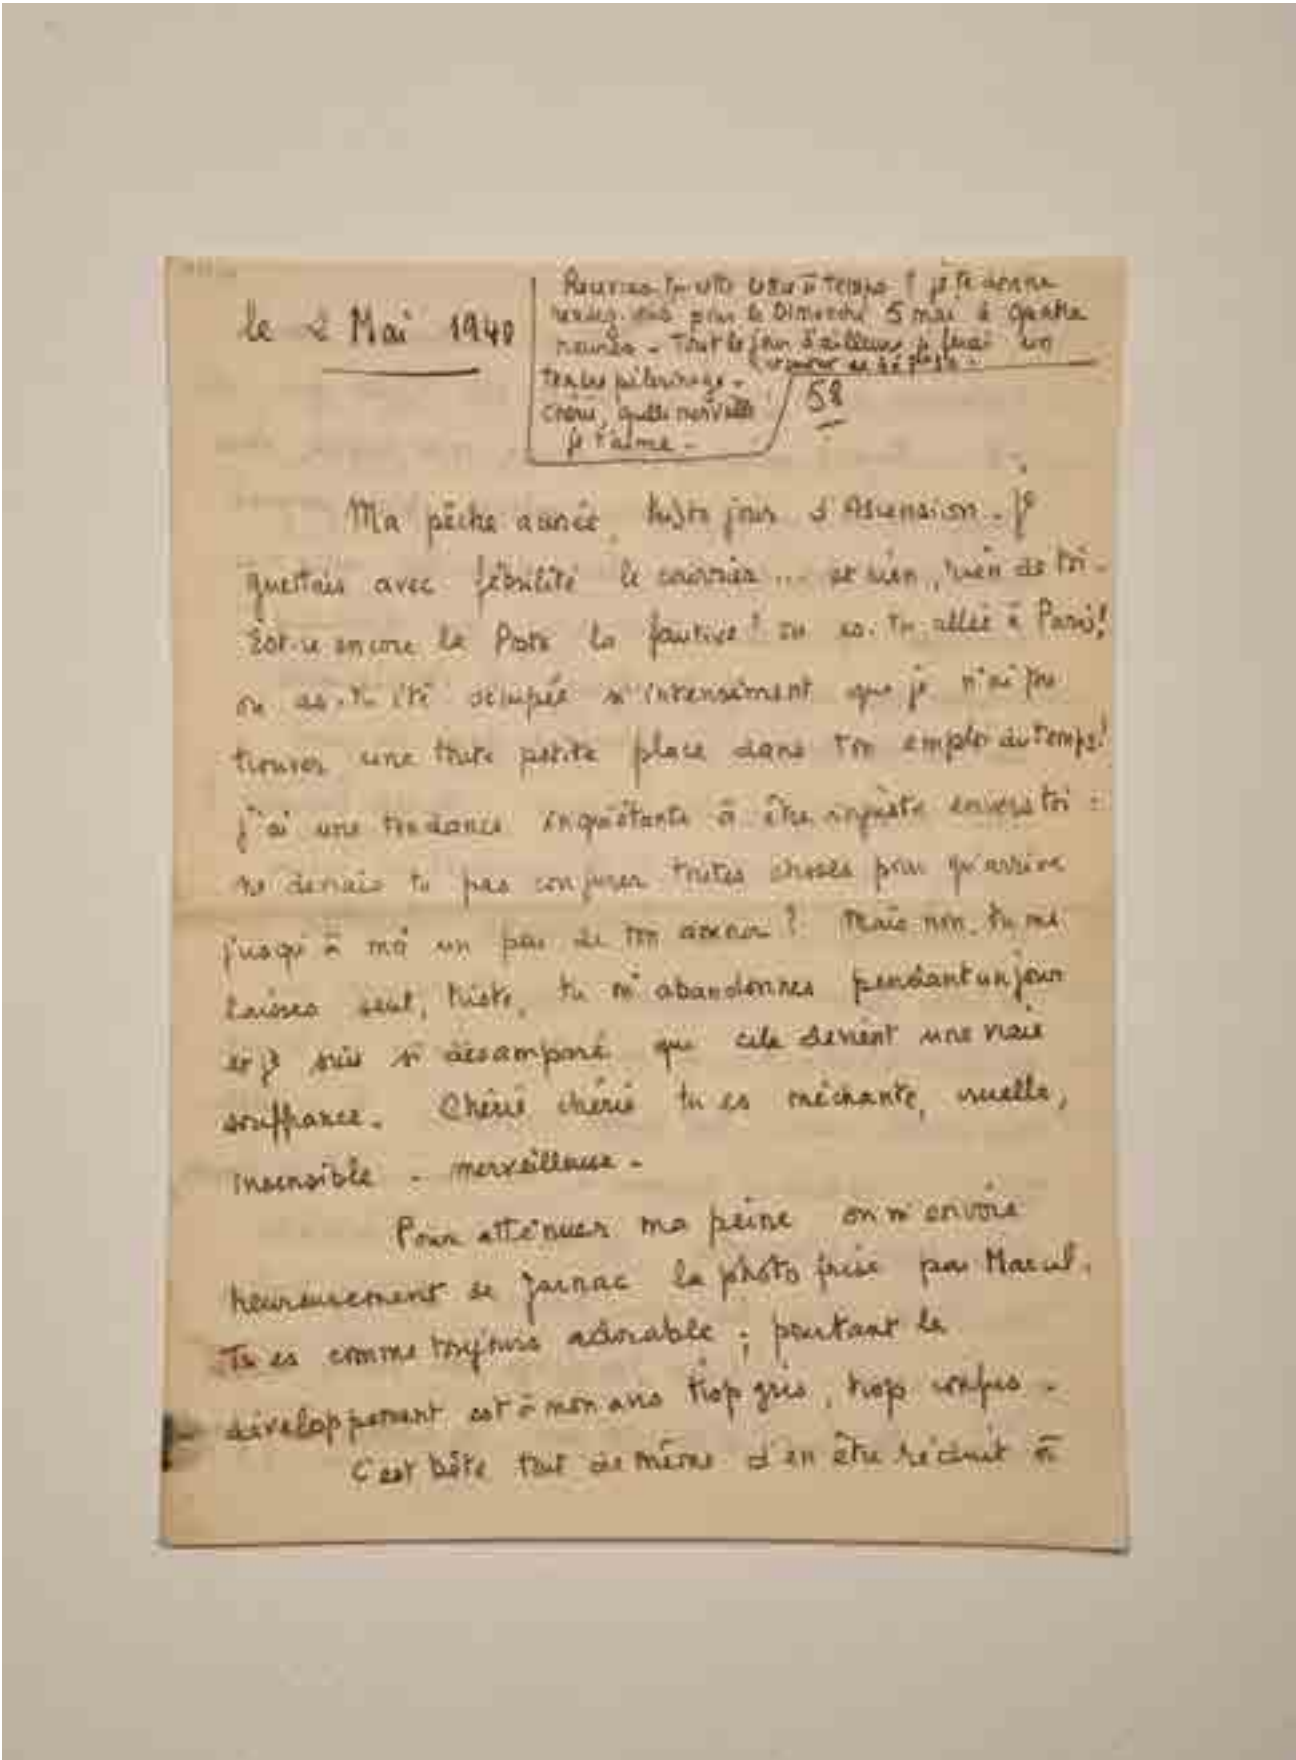 le 2 Mai 1940
Recevras-tu cette lettre à temps ? je te donne
rendez-vous pour le Dimanche 5 mai à quatre
heures - Tout le jour d'ailleurs je ferai un
tendre pèlerinage -
Chérie, quelle merveille
je t'aime -
58
Ma pêche aimée, triste jour d'Ascension - Je
guettais avec fébrilité le courrier ... et rien, rien de toi -
Est-ce encore la Poste la fautive ? ou es-tu allée à Paris !
ou as-tu été occupée si intensément que je n'ai pu
trouver une toute petite place dans ton emploi du temps !
j'ai une tendance inquiétante à être injuste envers toi :
ne devais tu pas conjurer toutes choses pour qu'arrive
jusqu'à moi un peu de ton amour ? Mais non, tu me
laisses seul, triste, tu m'abandonnes pendant un jour
et je suis si désemparé que cela devient une vraie
souffrance. Chérie chérie tu es méchante, cruelle,
insensible - merveilleuse -
Pour atténuer ma peine on m'envoie
heureusement de Jarnac la photo prise par Marcel.
Tu es comme toujours adorable ; pourtant le
développement est à mon avis trop gris, trop confus -
C'est bête tout de même d'en être réduit à